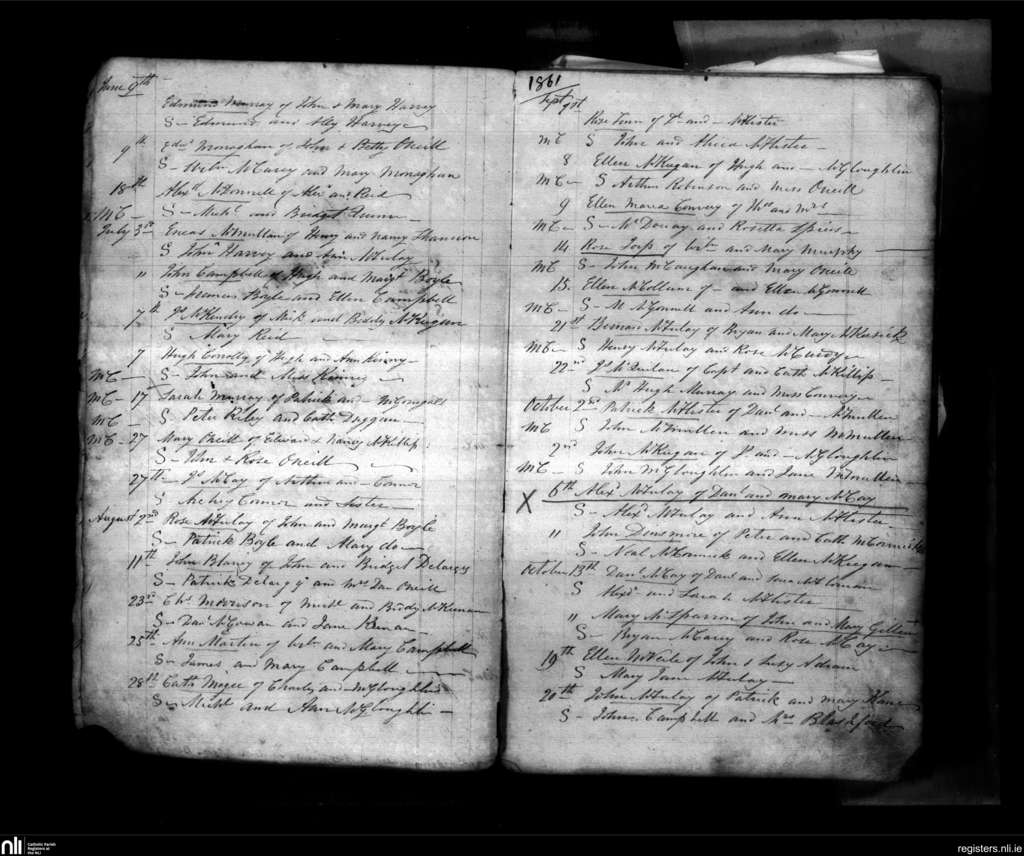 June 9th
Edmund Murray of John & Mary Harvy
S - Edmund and Ally Harvey
9th Edwd Monaghan of John & Betty Oneill
S - Willm McCurry and Mary Monaghan
18th Alexr McDonnell of Alexr and Reid
MC - S - Michl and Bridget Quinn -
July 3rd Eneas McMullan of Henry and Nancy Shannon
S John Harvey and Ann McAulay
" John Campbell of Hugh and Margt Boyle
S - Frances Boyle and Ellen Campbell
7th Js McKendry of Mick and Biddy McKeegan
S Mary Reid -
7 Hugh Conolly of Hugh and Ann Kinny -
MC - S - John and Miss Kinney -
MC - 17 Sarah Murray of Patrick and - McCongall
MC - S - Peter Riley and Cath Duggan -
MC - 27 Mary Oneill of Edward & Nancy McKillip
S - John & Rose Oneill -
27th - Js McCay of Arthur and - Connor
S - Connor and Sister -
August 2nd Rose McAulay of John and Margt Boyle
S - Patrick Boyle and Mary do -
11th John Blaney of John and Bridget Delargy
S - Patrick Delargy and Mrs Dan Oneill
23rd Chs Morrison of Michl and Biddy McKiernan
S - Danl McGowan and Jane Kernan -
25th Ann Martin of Wm and Mary Campbell
S - James and Mary Campbell -
28th Cath Magee of Charles and - McGloughlin
S - Michl and Ann McGloughlin -
1861
Sept 1st
Rose of Js and - McAlister
MC S John and Alicia McAlister -
8 Ellen McKeegan of Hugh and - McGloughlin
MC - S Arthur Robinson and Miss Oneill
9 Ellen Maria Convery of Thos and Mrs
MC - S - Mr Douay and Rosetta Spiers -
14 Rose of Wm and Mary Murphy -
MC S - John McCaughan and Mary Oneill
15 Ellen McCollum of - and Ellen McConnell
MC - S - M McConnell and Ann do -
21st Bernard McAulay of Bryan and Mary McKissick
MC - S Henry McAulay and Rose McCurry -
22nd Js McQuilan of Capt and Cath McKillip -
S Mr Hugh Murray and Miss Conway -
October 2nd Patrick McAlister of Danl and - McMullen
MC S John McMullen and Miss McMullen
2nd John McKeegan of Js and - McGloughlin
MC - S John McGloughlin and Jane McMullen
X 6th Alexr McAulay of Danl and Mary McCay
S - Alexr McAulay and Ann McAlister -
" John Densmore of Peter and Cath McCormick
S - Neal McCormick and Ellen McKeegan -
October 13th Danl McCay of Danl and
S Alexr and Sarah McAlister
" Mary McSparron of John and Mary Gillen
S - Bryan McCurry and Rose McCay -
19th Ellen McNeile of John & Lucy Adrain
S Mary Jane McAulay -
20th John McAulay of Patrick and Mary Kane
S - John Campbell and Mrs Blackford
nli
Catholic Parish
Registers at
the NLI
registers.nli.ie